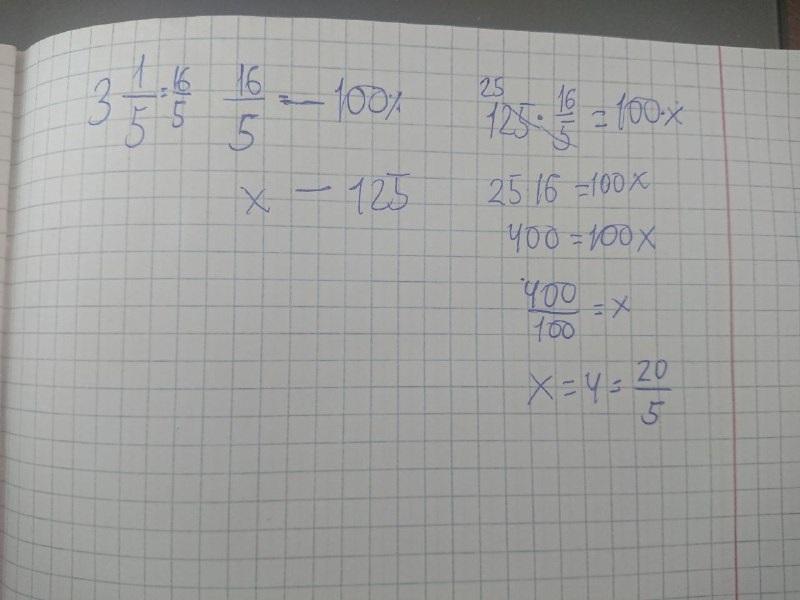 3 1/5 = 16/5
16/5 = — 100%
x — 125
25
125 · 16/5 = 100·x
25 16 = 100x
400 = 100x
400/100 = x
x = 4 = 20/5